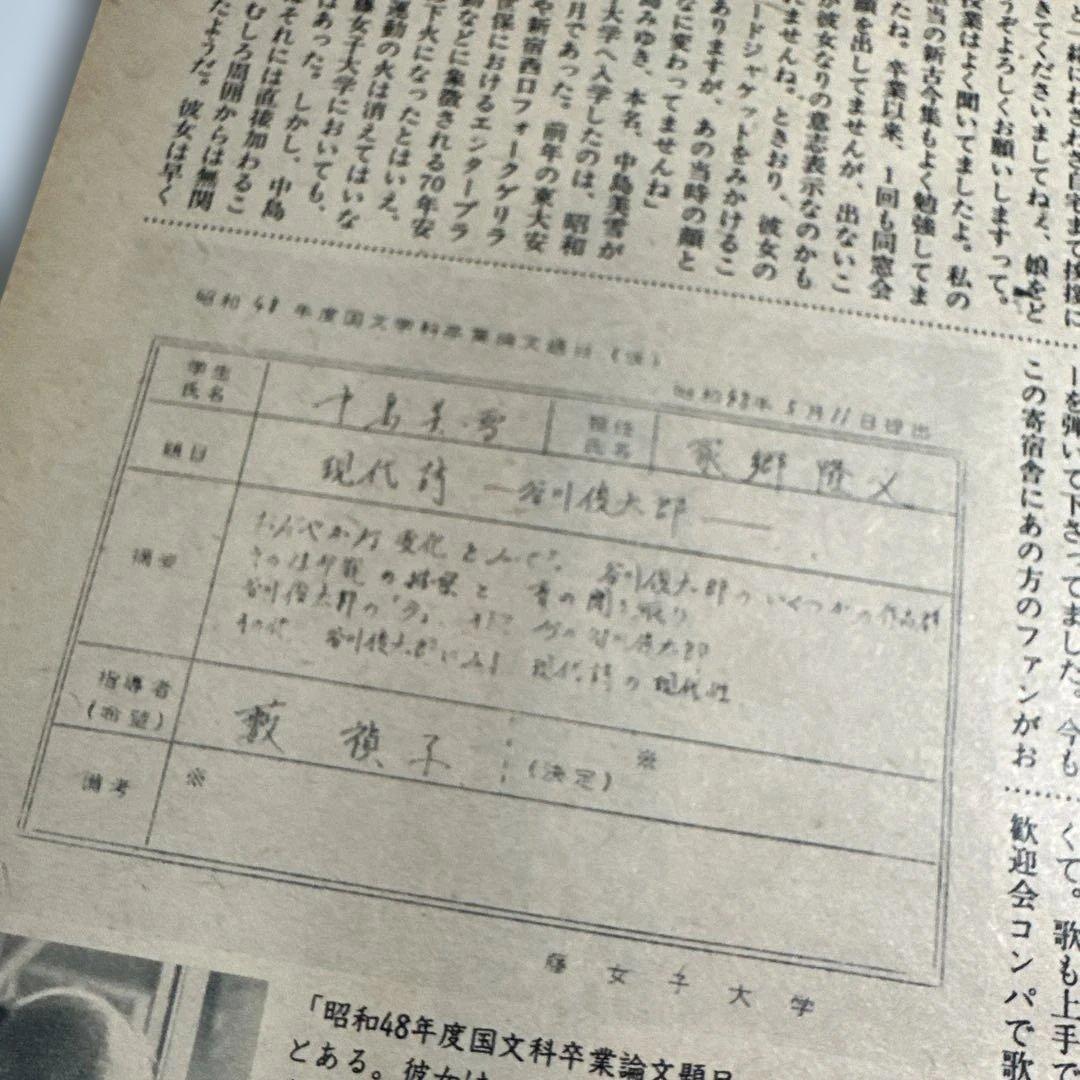 と一緒にわざわざ自宅まで挨拶に
きてくださいましてねえ、娘をど
うぞよろしくお願いしますって。
授業はよく聞いてましたよ。私の
当の新古今集もよく勉強してま
たね。卒業以来、1回も同窓会
顔を出してませんが、出ないこ
が彼女なりの意志表示なのかも
れませんね。ときおり、彼女の
ードジャケットをみかけるこ
ありますが、あの当時の顔と
なに変わってませんね」
島みゆき、本名、中島美雪が
大学へ入学したのは、昭和
月であった。前年の東大安
や新宿西口フォークゲリラ
世保におけるエンタープラ
動などに象徴される70年安
下火になったとはいえ、
運動の火は消えてはいな
藤女子大学においても、
はあった。しかし、中島
はそれには直接加わるこ
むしろ周囲からは無関
たようだ。彼女は早く
ーを弾いて下さってました。今も
この寄宿舎にあの方のファンがお
くて。歌も上手で
歓迎会コンパで歌
昭和48年度国文学科卒業論文題目(仮)
昭和48年5月11日提出
学生氏名 中島美雪 担任氏名 家郷隆文
題目 現代詩 ―谷川俊太郎―
摘要
変化と 谷川俊太郎のいくつかの作品群
の結果と 音の聞き取り
谷川俊太郎の
谷川俊太郎にみる 現代詩の現代性
指導者(希望) 藪禎子 (決定) ※
備考 ※
藤女子大学
「昭和48年度国文科卒業論文題目
とある。彼女は